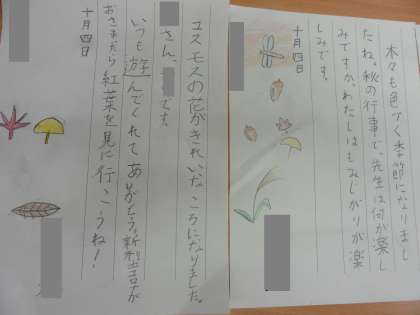 木々も色づく季節になりまし
たね。秋の行事で、先生は何が楽し
みですか。わたしはもみじがりが楽
しみです。
十月四日
コスモスの花がきれいなころになりました。
さん、です。
いつも遊んでくれてありがとう。新型コロナが
おさまったら紅葉を見に行こうね！
十月四日